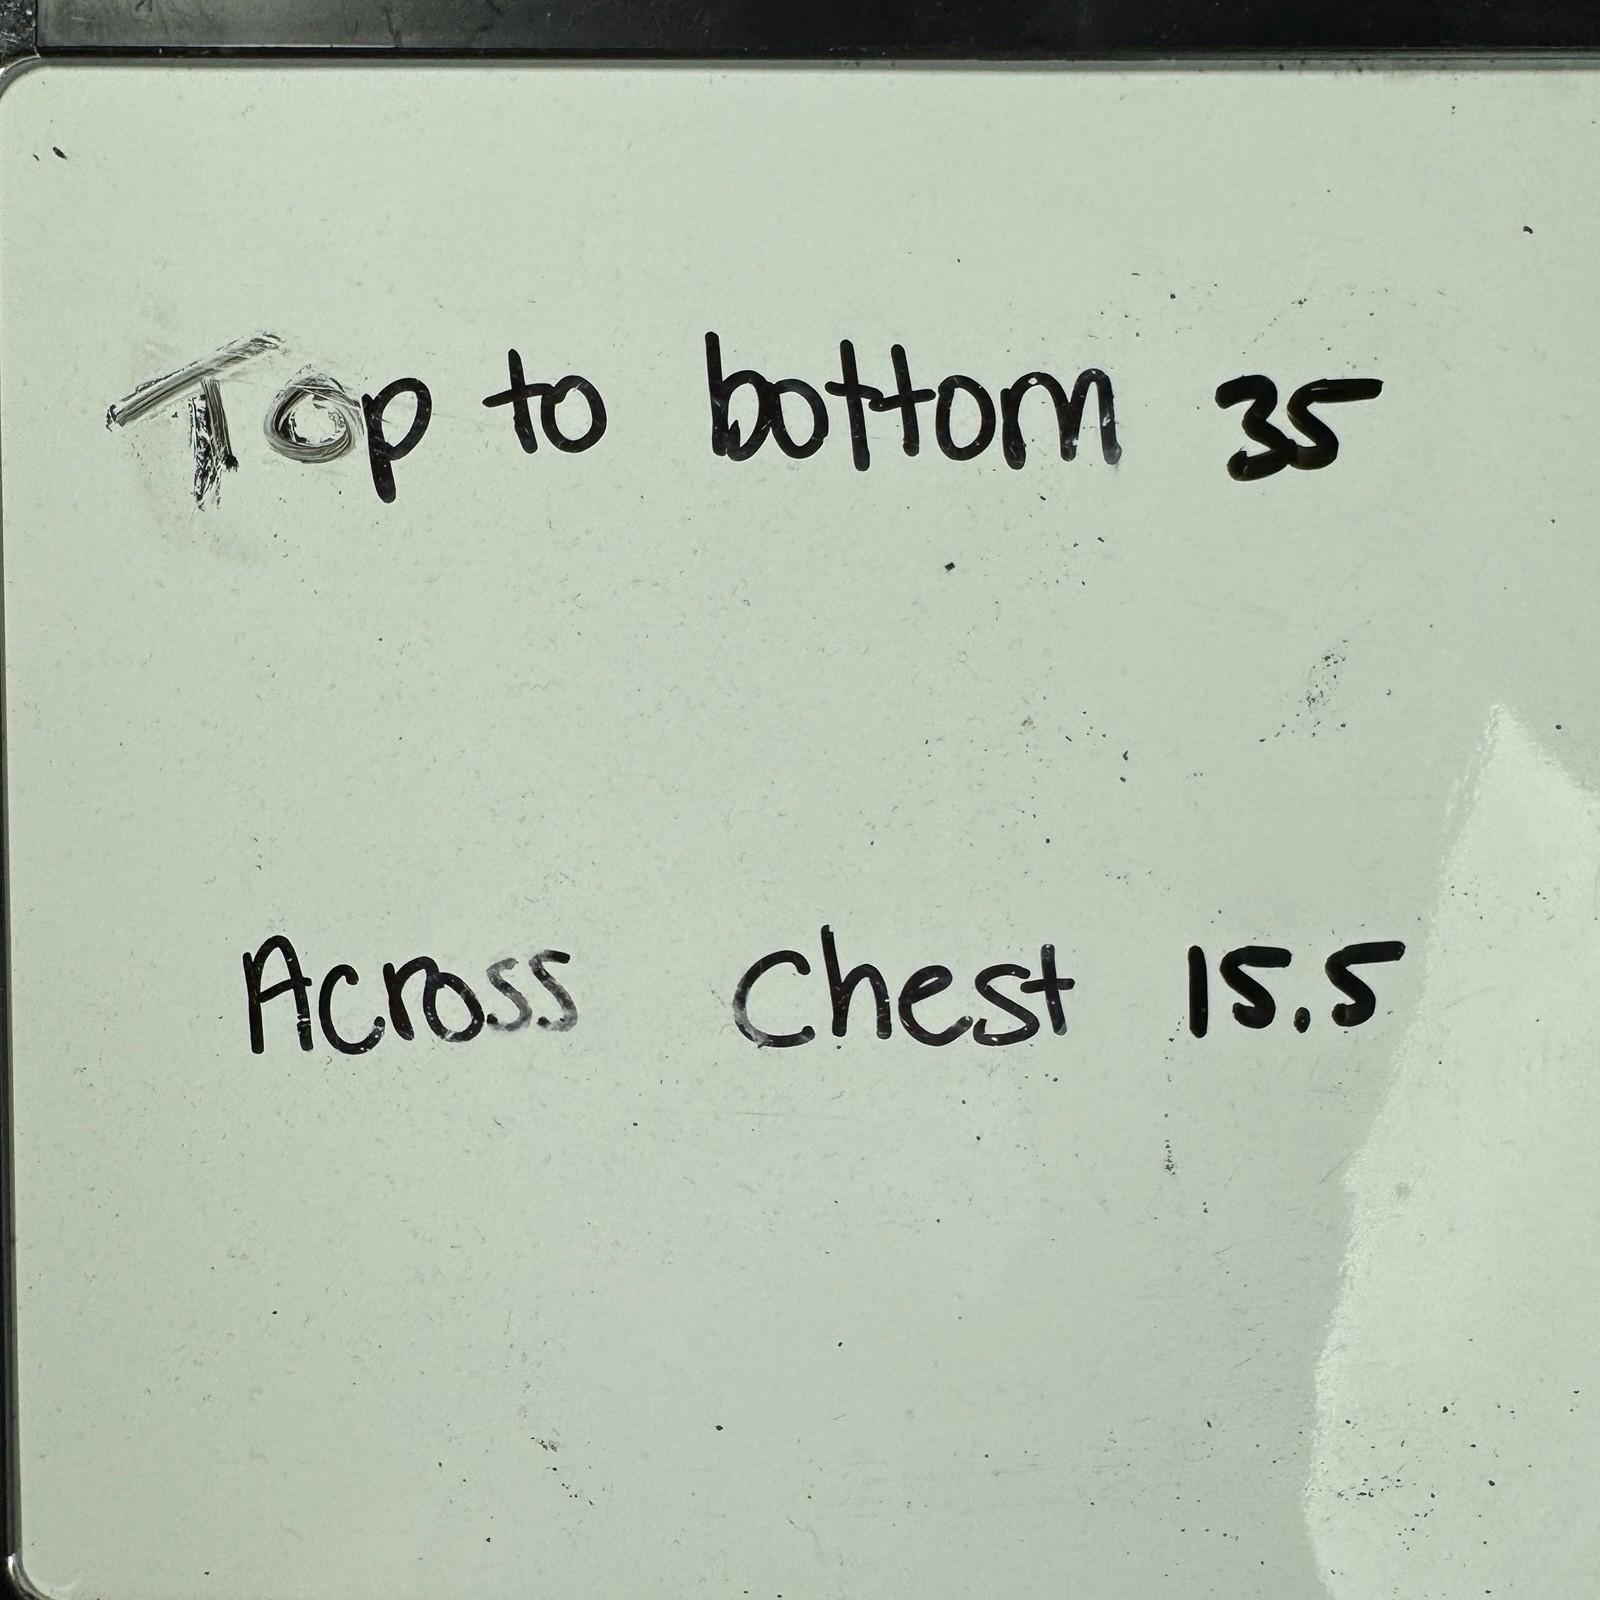 Top to bottom 35
Across chest 15.5